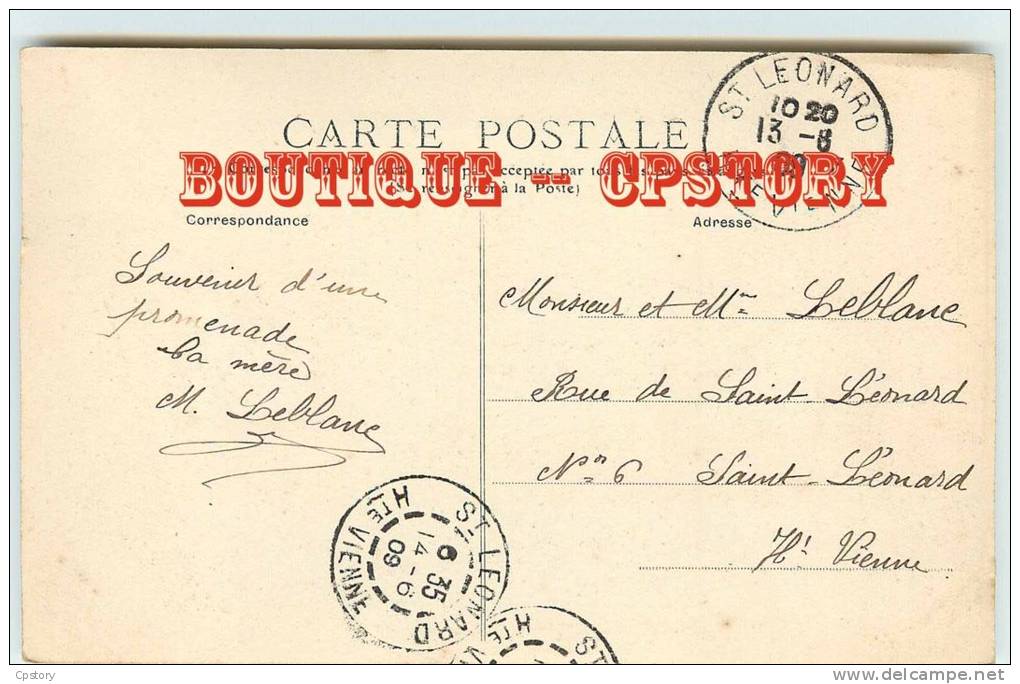 CARTE POSTALE
BOUTIQUE -- CPSTORY
à la Poste)
Correspondance
Adresse
ST LEONARD
10 20
13 -6
09
HTE VIENNE
Souvenir d'une
promenade
La mère
M. Leblanc
Monsieur et Mme Leblanc
Rue de Saint-Léonard
No 6 Saint-Léonard
Hte Vienne
ST LEONARD
6 35
14 -6
09
HTE VIENNE
ST
HTE VI
Cpstory
delcampe.net